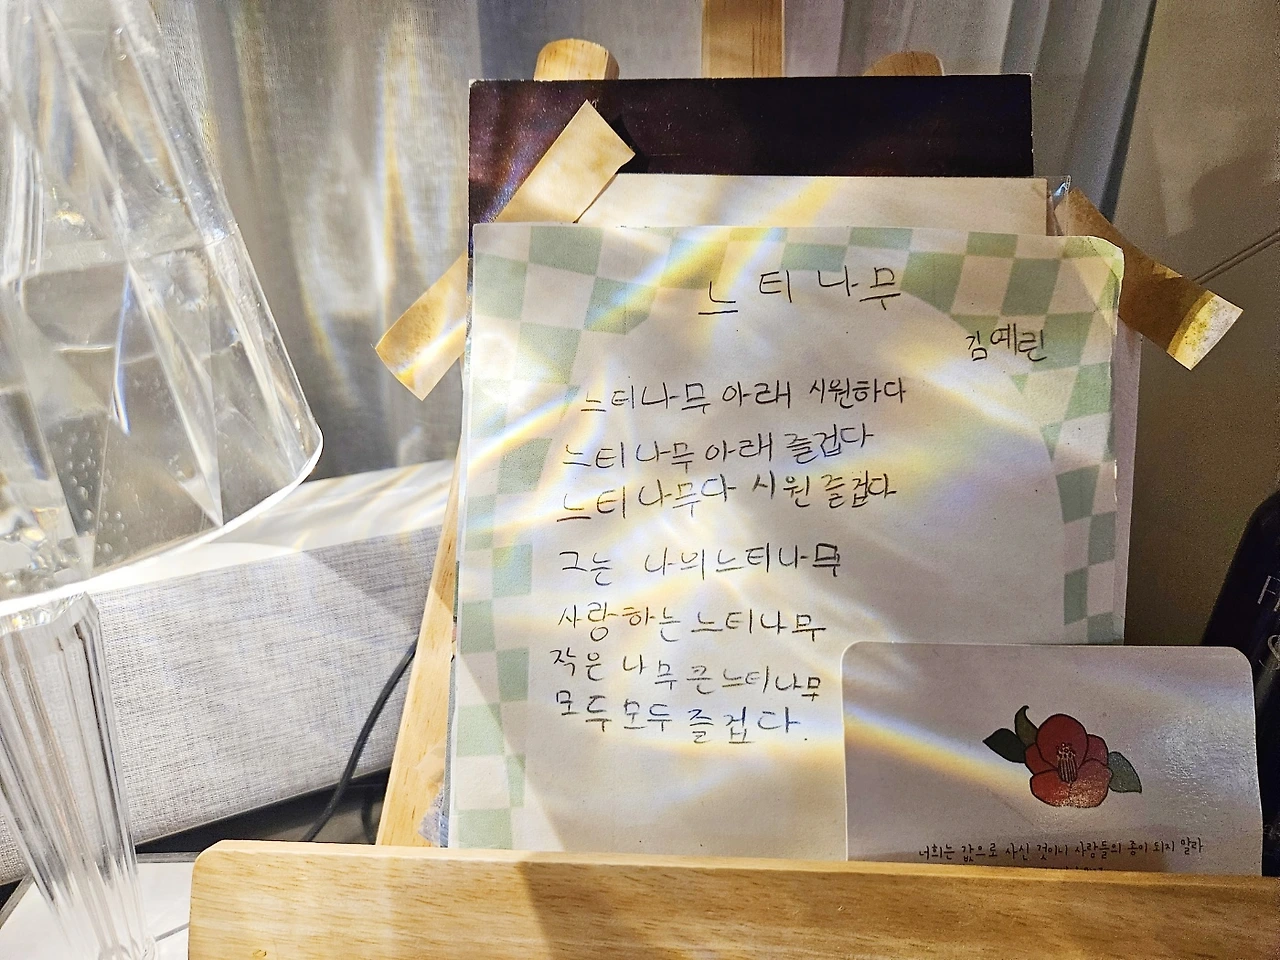 느티나무
김예린
느티나무 아래 시원하다
느티나무 아래 즐겁다
느티나무다 시원 즐겁다
그는 나의 느티나무
사랑하는 느티나무
작은 나무 큰 느티나무
모두 모두 즐겁다.
너희는 값으로 사신 것이니 사람들의 종이 되지 말라